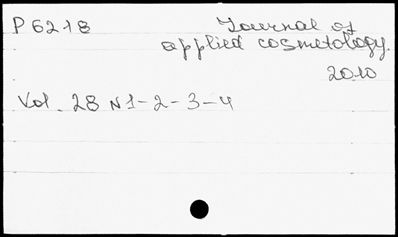 P 6218 Journal of
applied cosmetology.
2010
Vol. 28 N 1-2-3-4